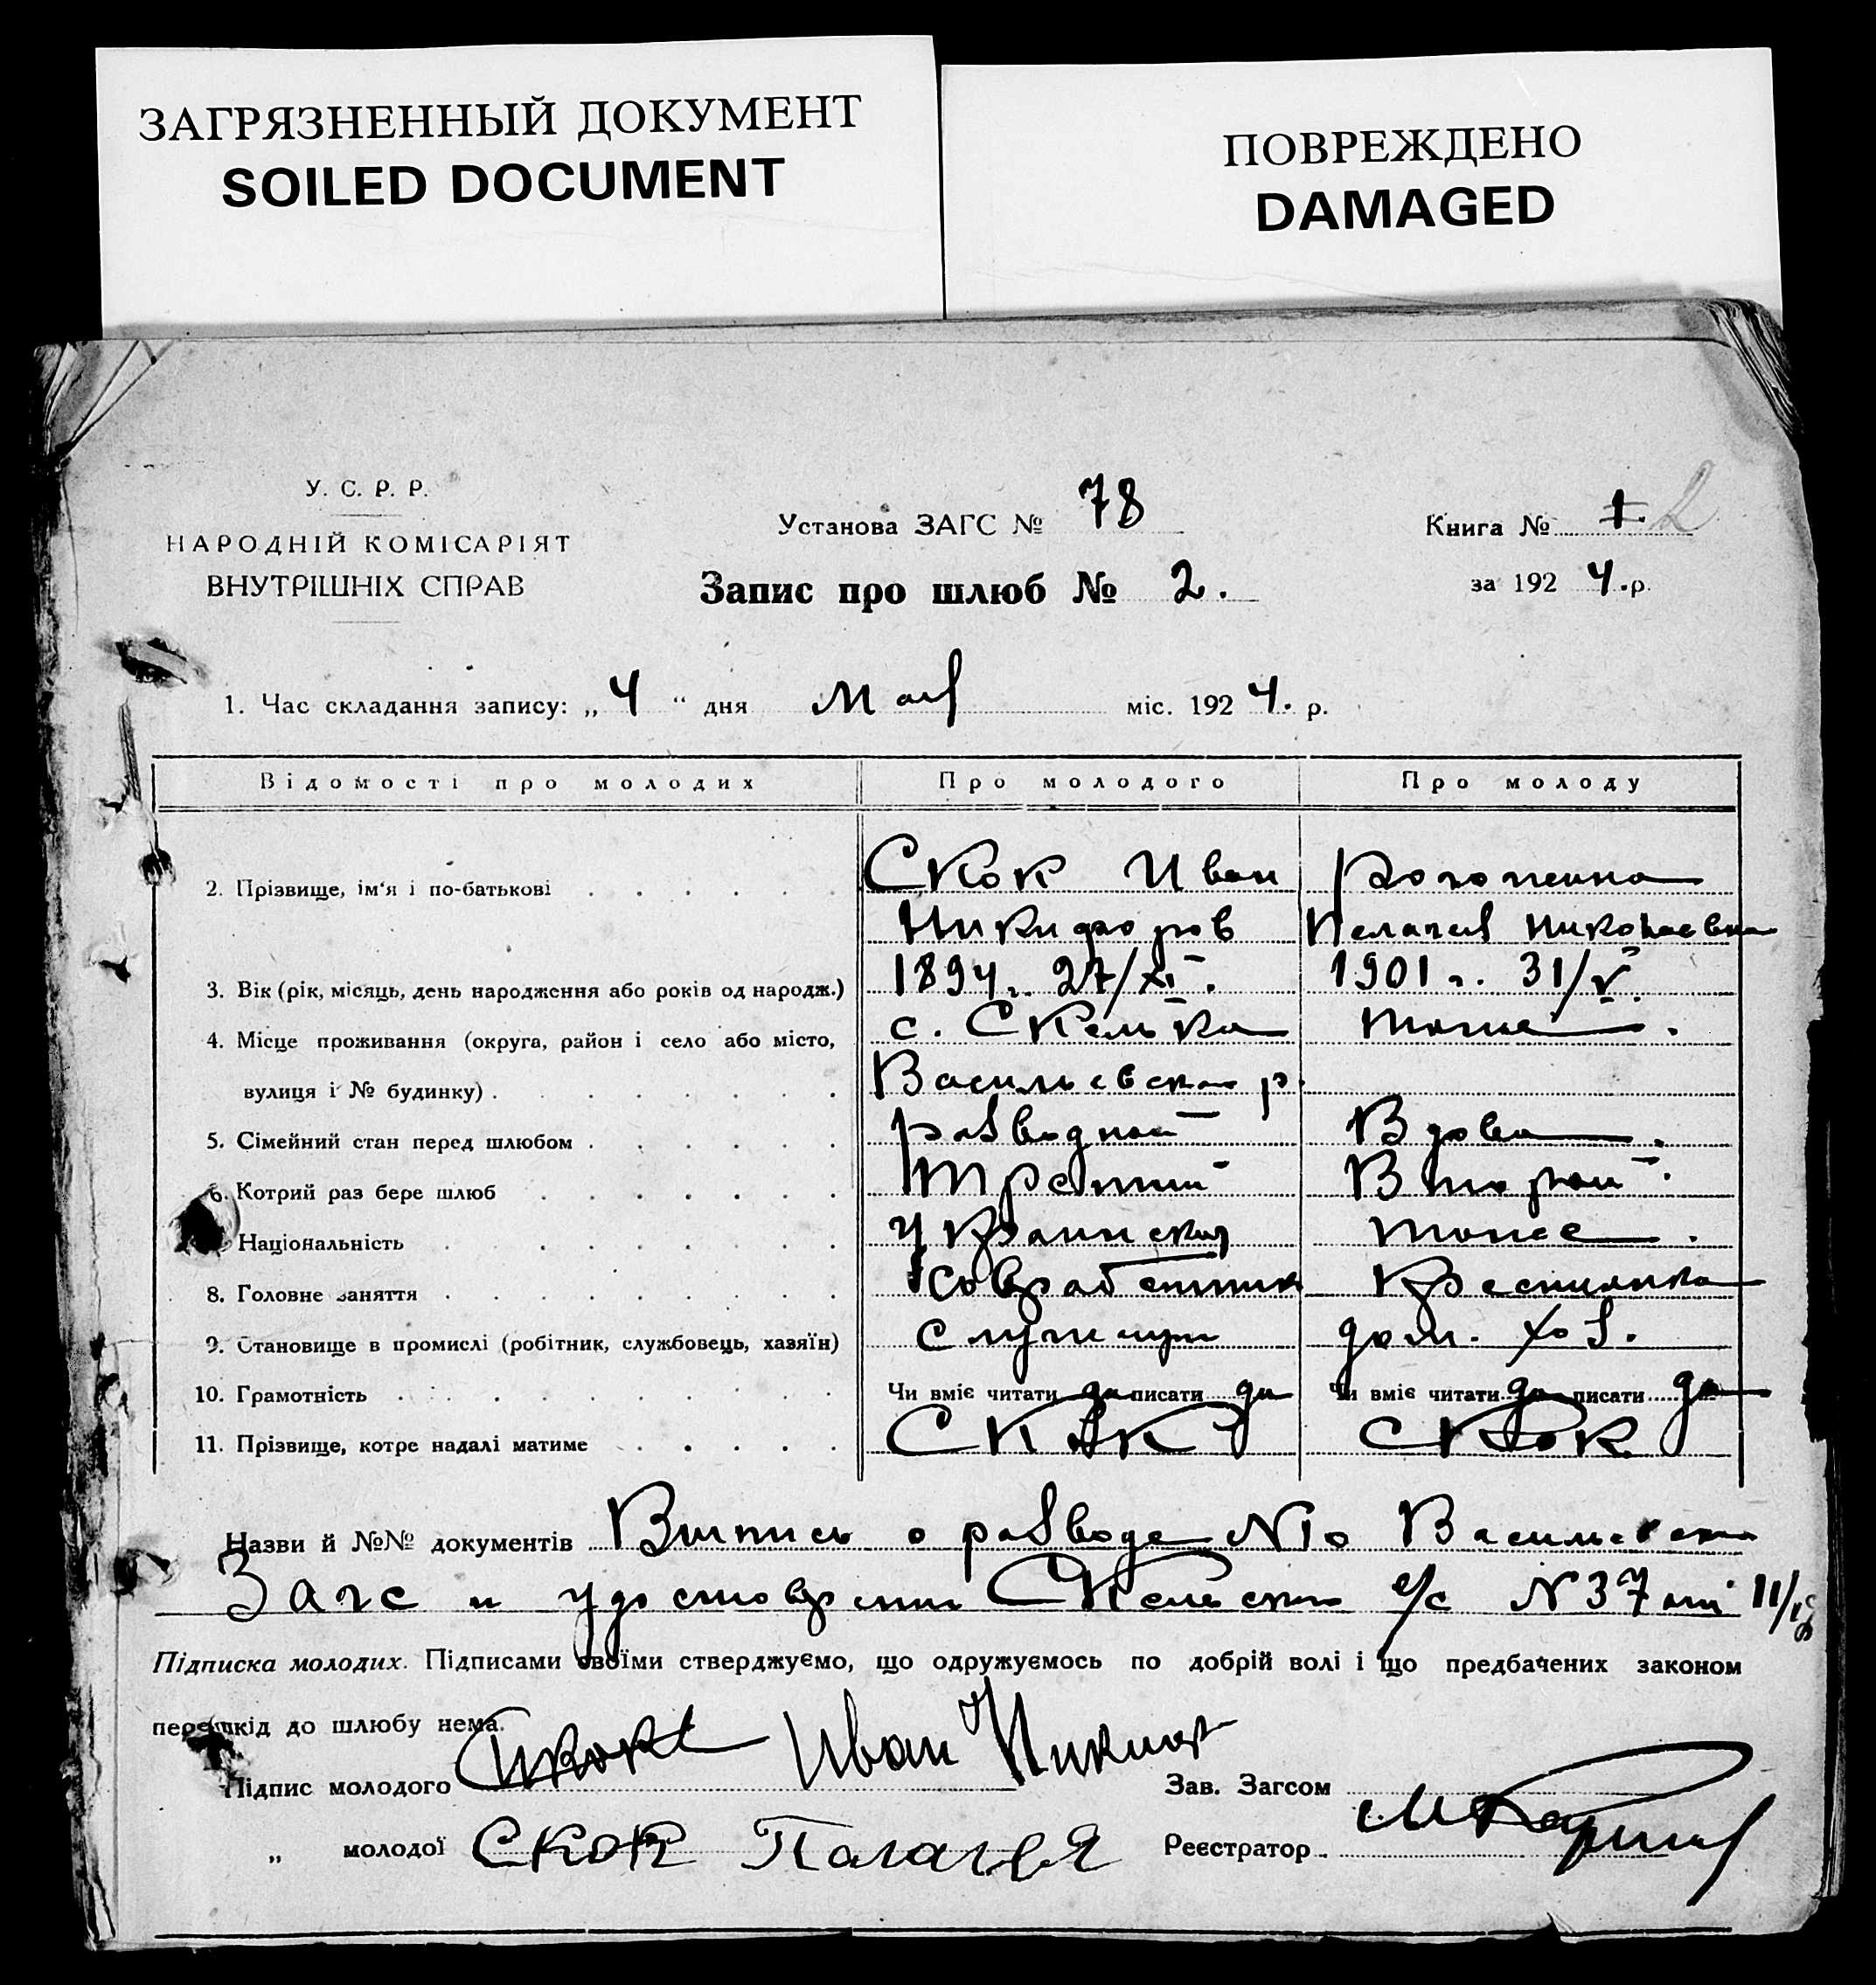 ЗАГРЯЗНЕННЫЙ ДОКУМЕНТ
SOILED DOCUMENT
ПОВРЕЖДЕНО
DAMAGED
У. С. Р. Р.
НАРОДНІЙ КОМІСАРІЯТ
ВНУТРІШНІХ СПРАВ
Установа ЗАГС № 78
Запис про шлюб № 2.
Книга № 1. 2
за 192 4. р.
1. Час складання запису: „ 4 “ дня Мая міс. 192 4. р.
Відомості про молодих Про молодого Про молоду
2. Прізвище, ім‘я і по-батькові Скок Иван
Никифоров Пелагея Николаевна
3. Вік (рік, місяць, день народження або років од народж.) 1894 г. 27/XI. 1901 г. 31/V.
4. Місце проживання (округа, район і село або місто, с. Скелька тоже.
вулиця і № будинку) Васильевская р.
5. Сімейний стан перед шлюбом разводной Вдова.
6. Котрий раз бере шлюб Третий Второй.
Національність Украинская тоже.
8. Головне заняття Крестьянка
9. Становище в промислі (робітник, службовець, хазяїн) служащий дом. хоз.
10. Грамотність Чи вміє читати да писати да Чи вміє читати да писати да
11. Прізвище, котре надалі матиме Скок Скок
Назви й №№ документів Выпись о разводе Васильевского
Загс и удостоверение Скельского с/с N 37 от 11/
Підписка молодих. Підписами своїми стверджуємо, що одружуємось по добрій волі і що предбачених законом
перешкід до шлюбу нема.
Підпис молодого Иван Зав. Загсом
„ молодої Скок Палагея Реєстратор